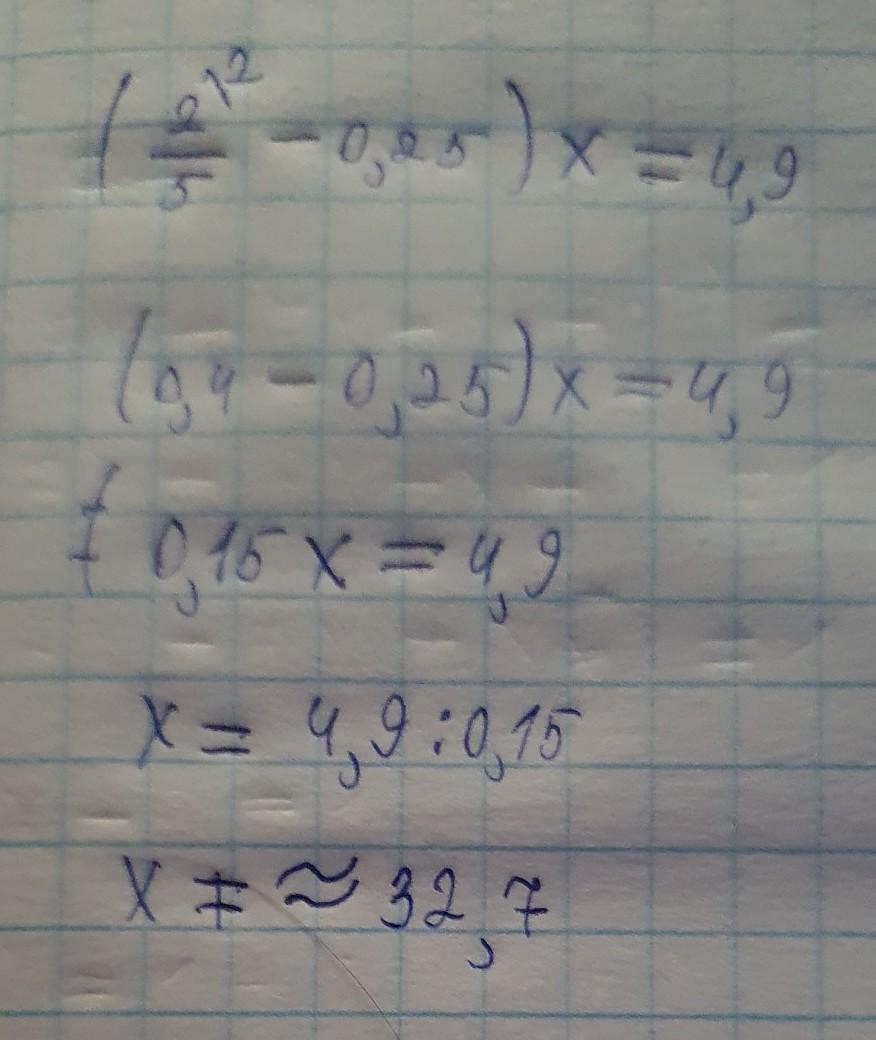 (2\2/5 - 0,25) x = 4,9
(0,4 - 0,25) x = 4,9
0,15 x = 4,9
x = 4,9 : 0,15
x ≈ 32,7